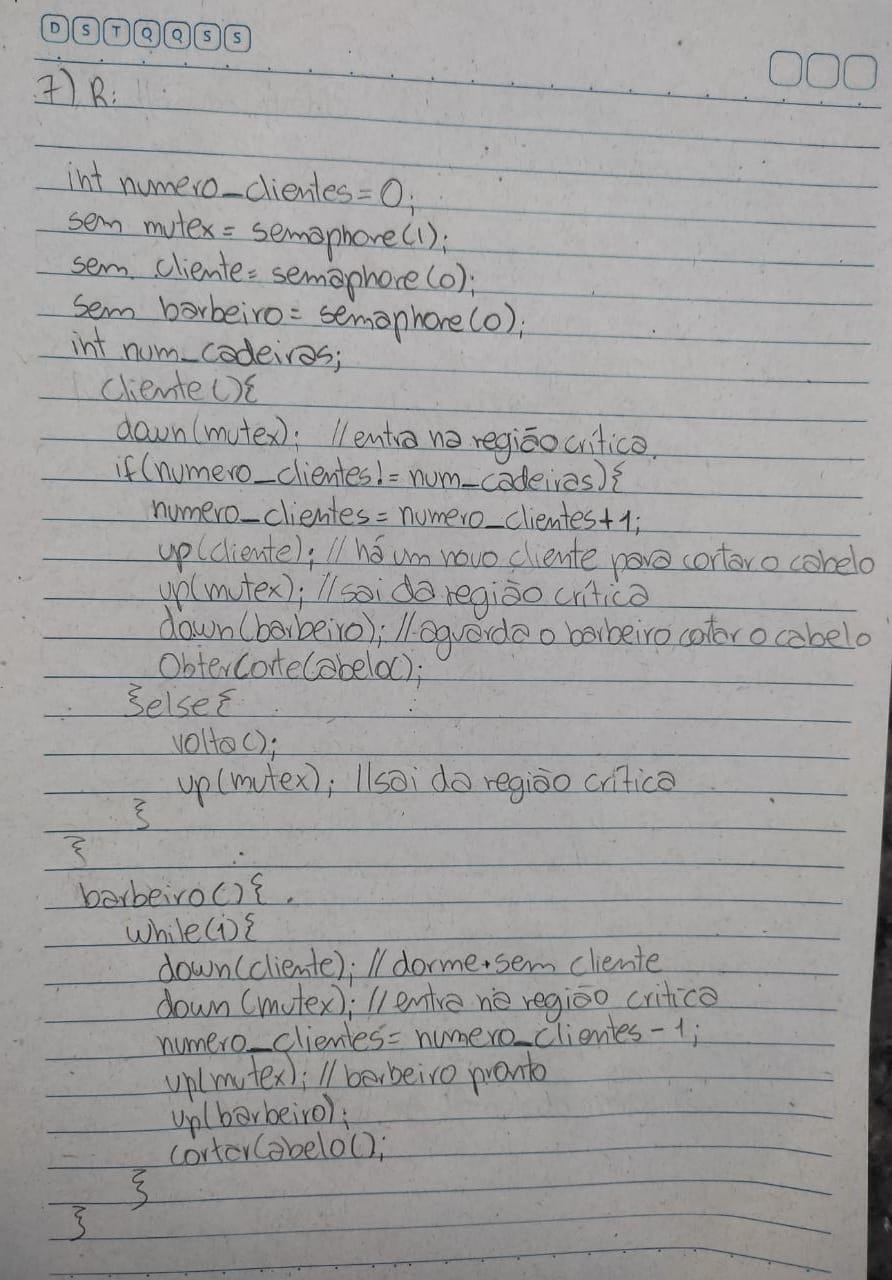 D S T Q Q S S
7) R:
int numero_clientes = 0;
sem mutex = semaphore(1);
sem cliente = semaphore(0);
sem barbeiro = semaphore(0);
int num_cadeiras;
cliente(){
down(mutex); //entra na região crítica.
if(numero_clientes != num_cadeiras){
numero_clientes = numero_clientes + 1;
up(cliente); // há um novo cliente para cortar o cabelo
up(mutex); //sai da região crítica
down(barbeiro); //aguarda o barbeiro cotar o cabelo
ObterCorteCabelo();
}else{
volta();
up(mutex); //sai da região crítica
}
}
barbeiro(){
while(1){
down(cliente); // dorme sem cliente
down(mutex); //entra na região critica
numero_clientes = numero_clientes - 1;
up(mutex); // barbeiro pronto
up(barbeiro);
cortarCabelo();
}
}